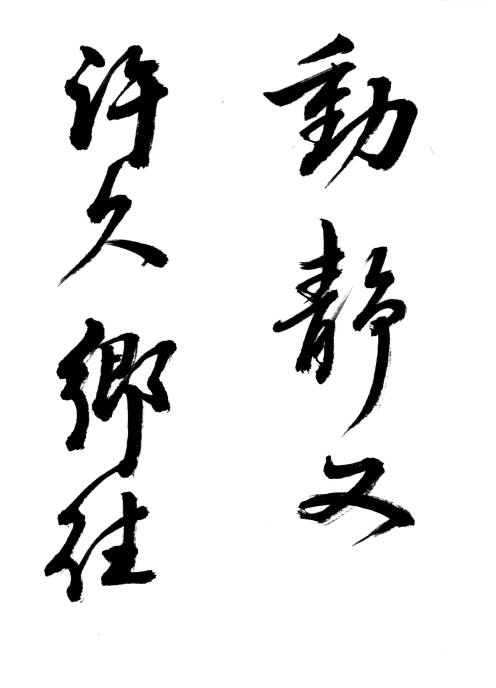 動靜又
許久鄉往